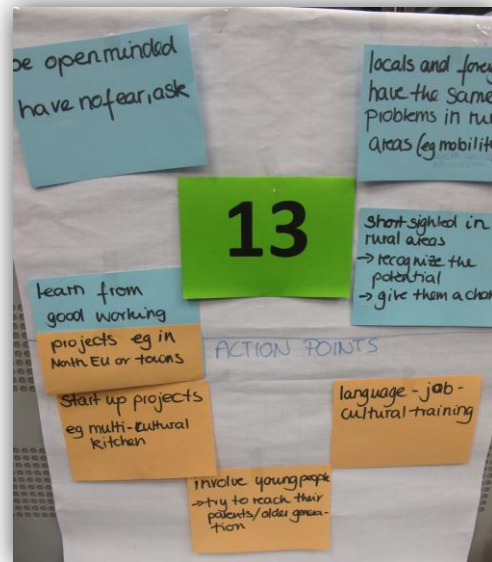 be openminded
have no fear, ask
locals and foreig
have the same
problems in rur
areas (eg mobilit
13
short sighted in
rural areas
→ recognize the
potential
→ give them a chan
learn from
good working
projects eg in
North EU or towns
ACTION POINTS
Start up projects
eg multi-cultural
kitchen
language - job -
cultural training
involve young people
→ try to reach their
parents/older genera-
tion